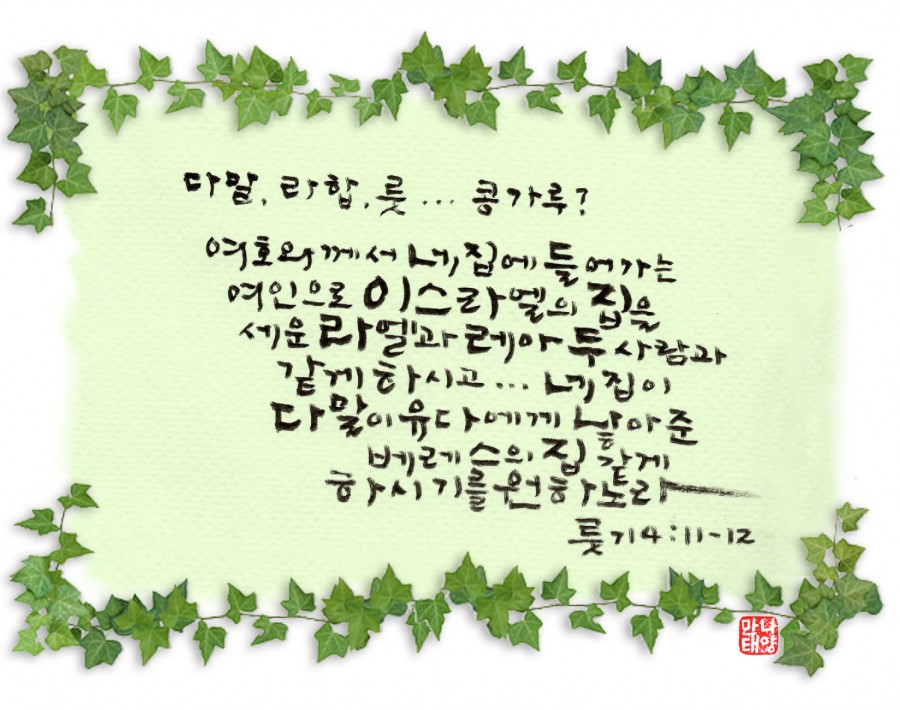 다말, 라합, 룻... 콩가루?
여호와께서 네 집에 들어가는
여인으로 이스라엘의 집을
세운 라엘과 레아 두 사람과
같게 하시고... 네 집이
다말이 유다에게 낳아 준
베레스의 집 같게
하시기를 원하노라
룻기 4:11-12
만나
태양